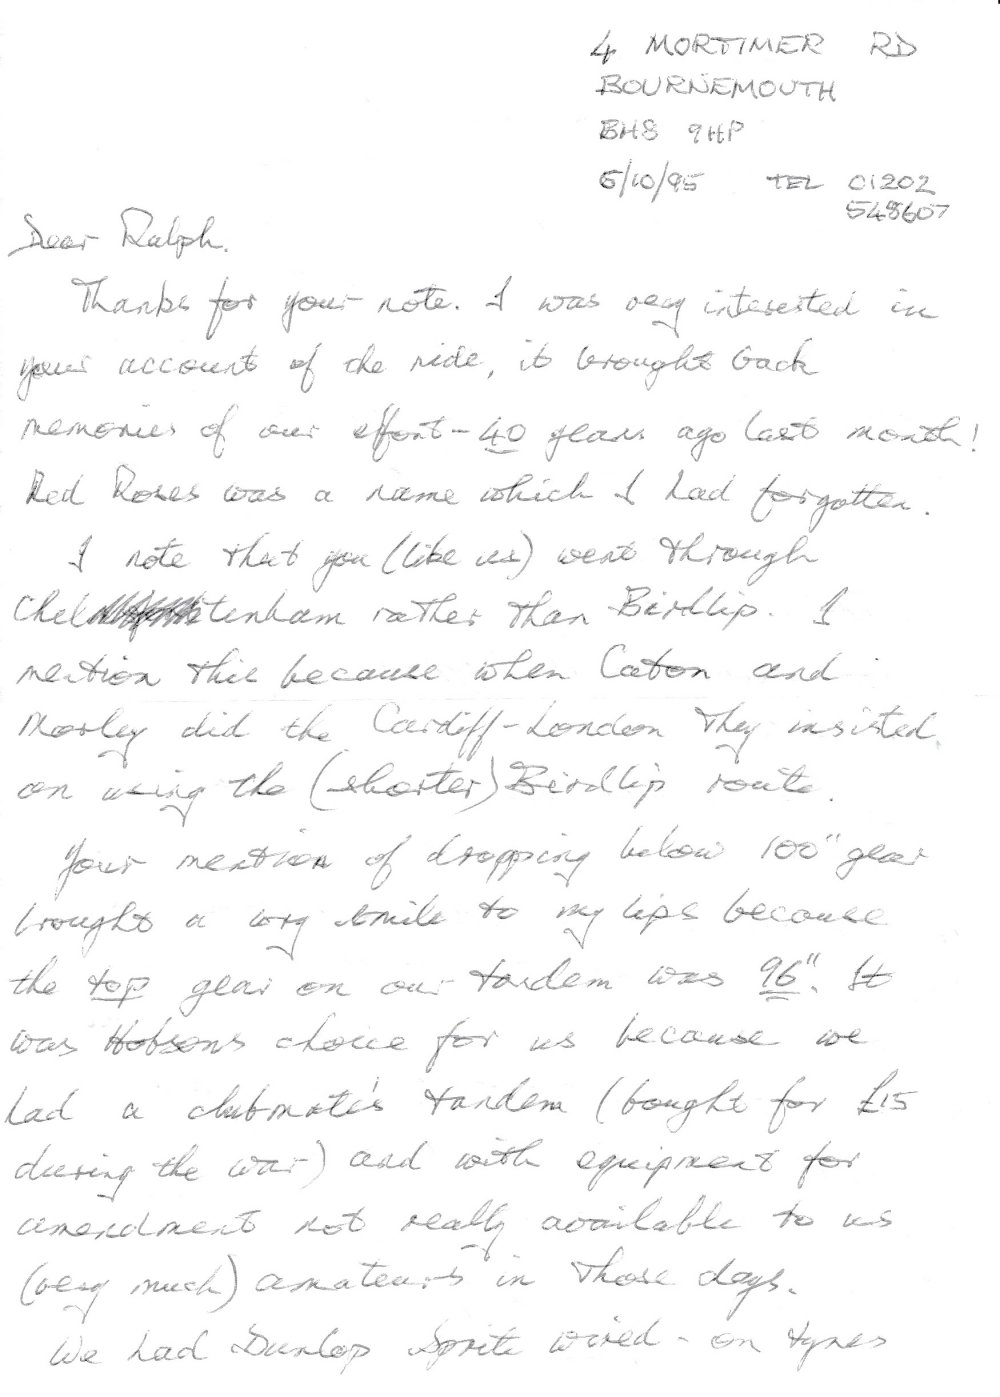 4 MORTIMER RD
BOURNEMOUTH
BH8 9HP
6/10/95 TEL 01202
548607
Dear Ralph.
Thanks for your note. I was very interested in
your account of the ride, it brought back
memories of our effort - 40 years ago last month!
Red Roses was a name which I had forgotten.
I note that you (like us) went through
Cheltenham rather than Birdlip. I
mention this because when Caton and
Morley did the Cardiff-London they insisted
on using the (shorter) Birdlip route.
Your mention of dropping below 100" gear
brought a wry smile to my lips because
the top gear on our tandem was 96". It
was Hobsons choice for us because we
had a clubmate's tandem (bought for £15
during the war) and with equipment for
amendment not really available to us
(very much) amateurs in those days.
We had Dunlop Sprite wired-on tyres